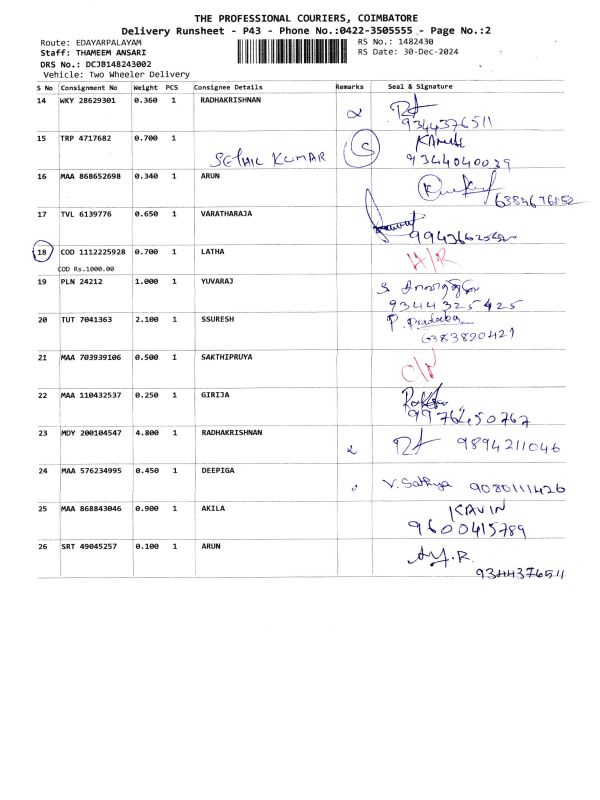 THE PROFESSIONAL COURIERS, COIMBATORE
Delivery Runsheet - P43 - Phone No.:0422-3505555 - Page No.:2
Route: EDAYARPALAYAM RS No.: 1482430
Staff: THAMEEM ANSARI RS Date: 30-Dec-2024
DRS No.: DCJB148243002
Vehicle: Two Wheeler Delivery
S No Consignment No Weight PCS Consignee Details Remarks Seal & Signature
14 WKY 28629301 0.360 1 RADHAKRISHNAN
9344376511
15 TRP 4717682 0.700 1
SEtHIL KUMAR S 9344040029
16 MAA 868652698 0.340 1 ARUN
17 TVL 6139776 0.650 1 VARATHARAJA
18 COD 1112225928 0.700 1 LATHA
COD Rs.1000.00
19 PLN 24212 1.000 1 YUVARAJ
9344325425
20 TUT 7041363 2.100 1 SSURESH P. Pradeeba
6383820421
21 MAA 703939106 0.500 1 SAKTHIPRUYA
22 MAA 110432537 0.250 1 GIRIJA
9976250767
23 MDY 200104547 4.800 1 RADHAKRISHNAN 9894211046
24 MAA 576234995 0.450 1 DEEPIGA V. Sathya 9080111426
25 MAA 868843046 0.900 1 AKILA KAVIN
9600415789
26 SRT 49045257 0.100 1 ARUN
9344376511